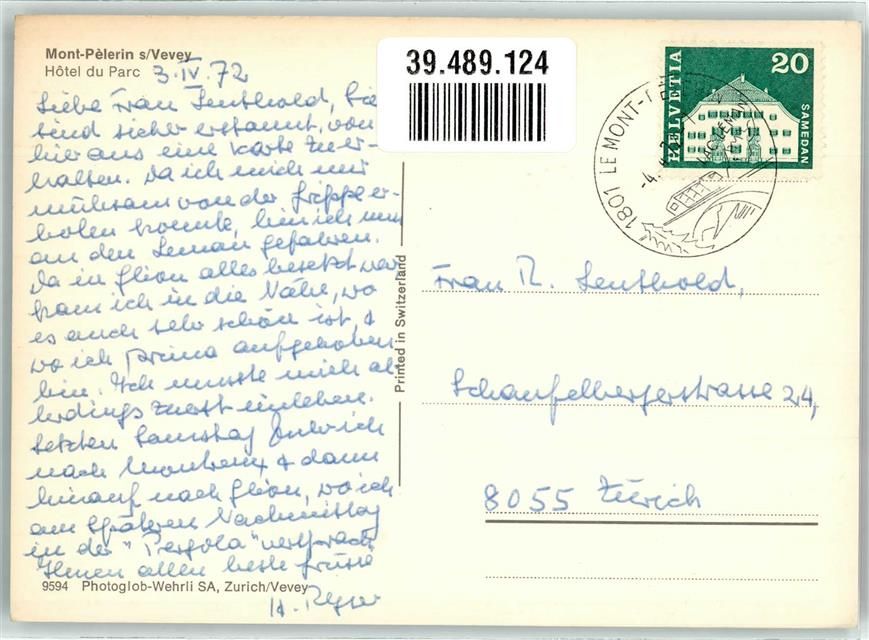 Mont-Pèlerin s/Vevey
Hôtel du Parc 3.IV.72
Liebe Frau Leuthold, Sie
sind sicher erstaunt, von
hier aus eine Karte zu er-
halten. Da ich mich nur
mühsam von der Grippe er-
holen konnte, bin ich nun
an den Leman gefahren.
Da in Glion alles besetzt war
kam ich in die Nähe, wo
es auch sehr schön ist, &
wo ich prima aufgehoben
bin. Ich musste mich al-
lerdings zuerst einleben.
Letzten Samstag fuhr ich
nach Montreux & dann
hinauf nach Glion, wo ich
am späteren Nachmittag
in der "Pergola"
Ihnen allen beste Grüsse
H.
9594 Photoglob-Wehrli SA, Zurich/Vevey
Printed in Switzerland
39.489.124
HELVETIA
20
SAMEDAN
1801 LE MONT-PÈ
LAC LEMAN
-4.
Frau R. Leuthold,
Schaufelbergerstrasse 24,
8055 Zürich